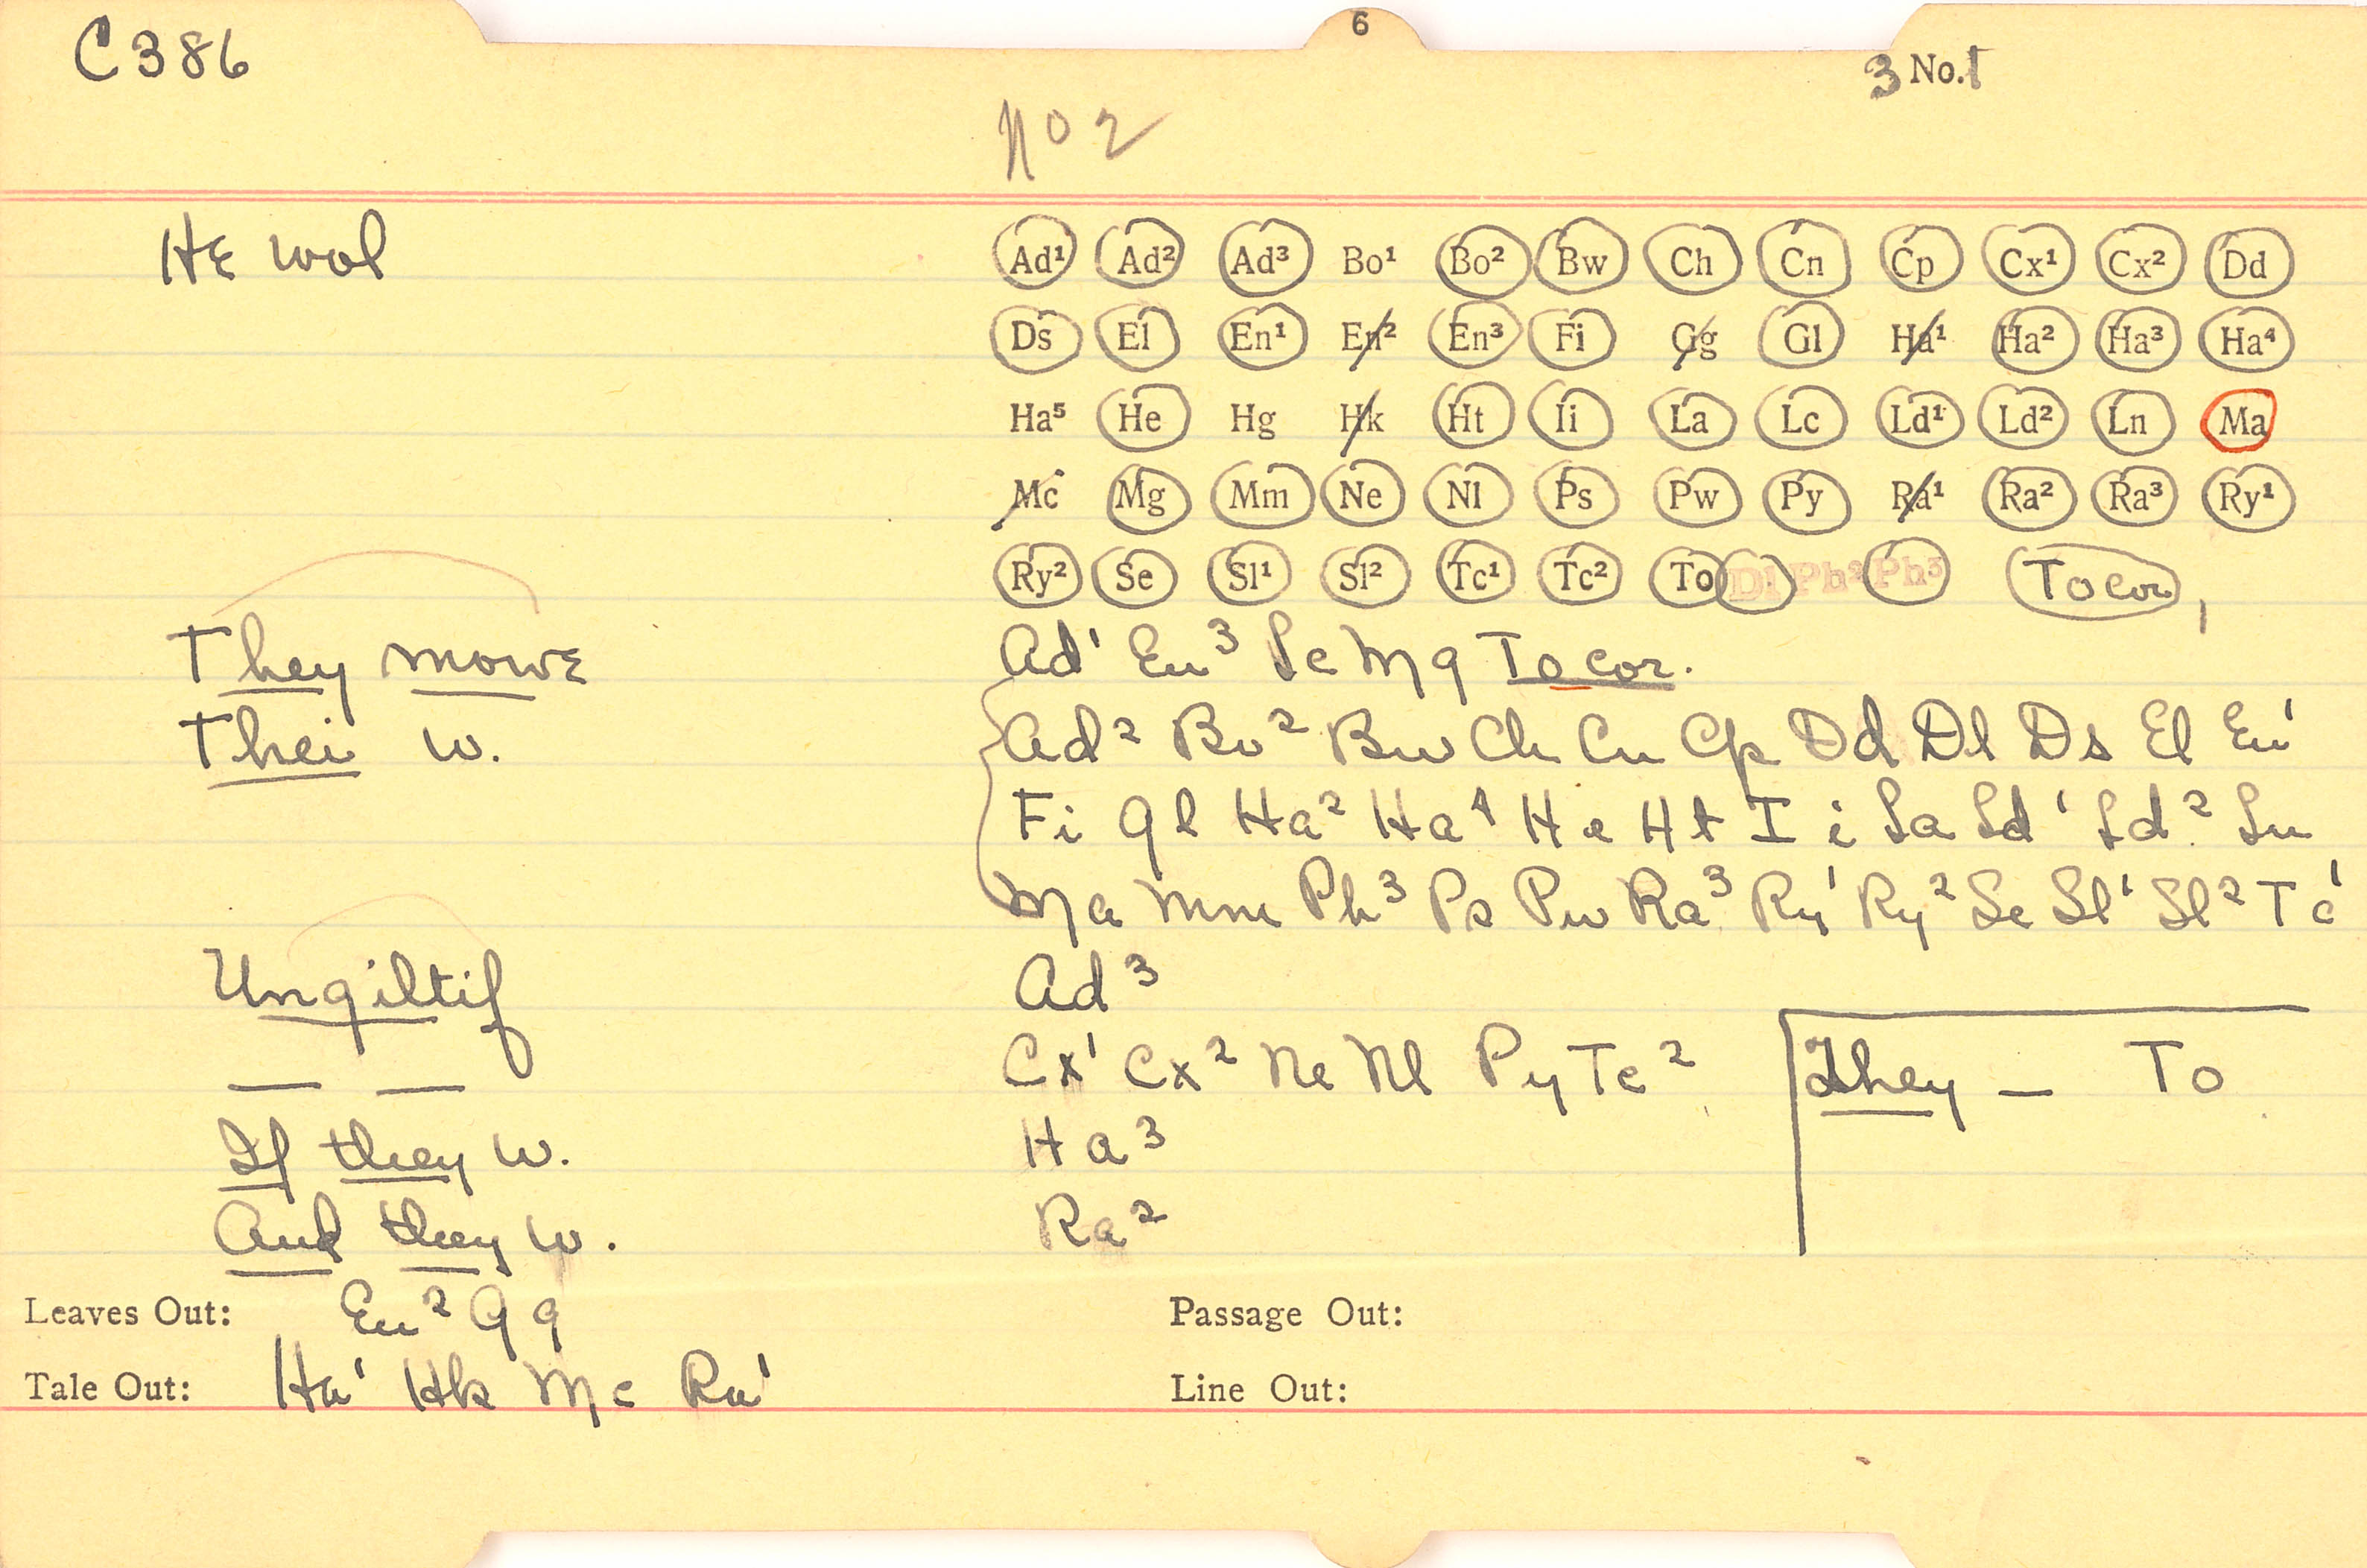 6
C 386
3 No. 1
No 2
He wol
Ad¹ Ad² Ad³ Bo¹ Bo² Bw Ch Cn Cp Cx¹ Cx² Dd
Ds El En¹ En² En³ Fi Gg Gl Ha¹ Ha² Ha³ Ha⁴
Ha⁵ He Hg Hk Ht Ii La Lc Ld¹ Ld² Ln Ma
Mc Mg Mm Ne Nl Ps Pw Py Ra¹ Ra² Ra³ Ry¹
Ry² Se Sl¹ Sl² Tc¹ Tc² To Dl Ph² Ph³ To cor,
They mowe Ad¹ En³ Lc Mg To cor.
Thei w. Ad² Bo² Bw Ch Cn Cp Dd Dl Ds El En¹
Fi Gl Ha² Ha⁴ He Ht Ii La Ld¹ Ld² Ln
Ma Mm Ph³ Ps Pw Ra³ Ry¹ Ry² Se Sl¹ Sl² Tc¹
Ungiltif Ad³
— — Cx¹ Cx² Ne Nl Py Tc² They — To
If they w. Ha³
And they w. Ra²
Leaves Out: En² Gg Passage Out:
Tale Out: Ha¹ Hk Mc Ra¹ Line Out: